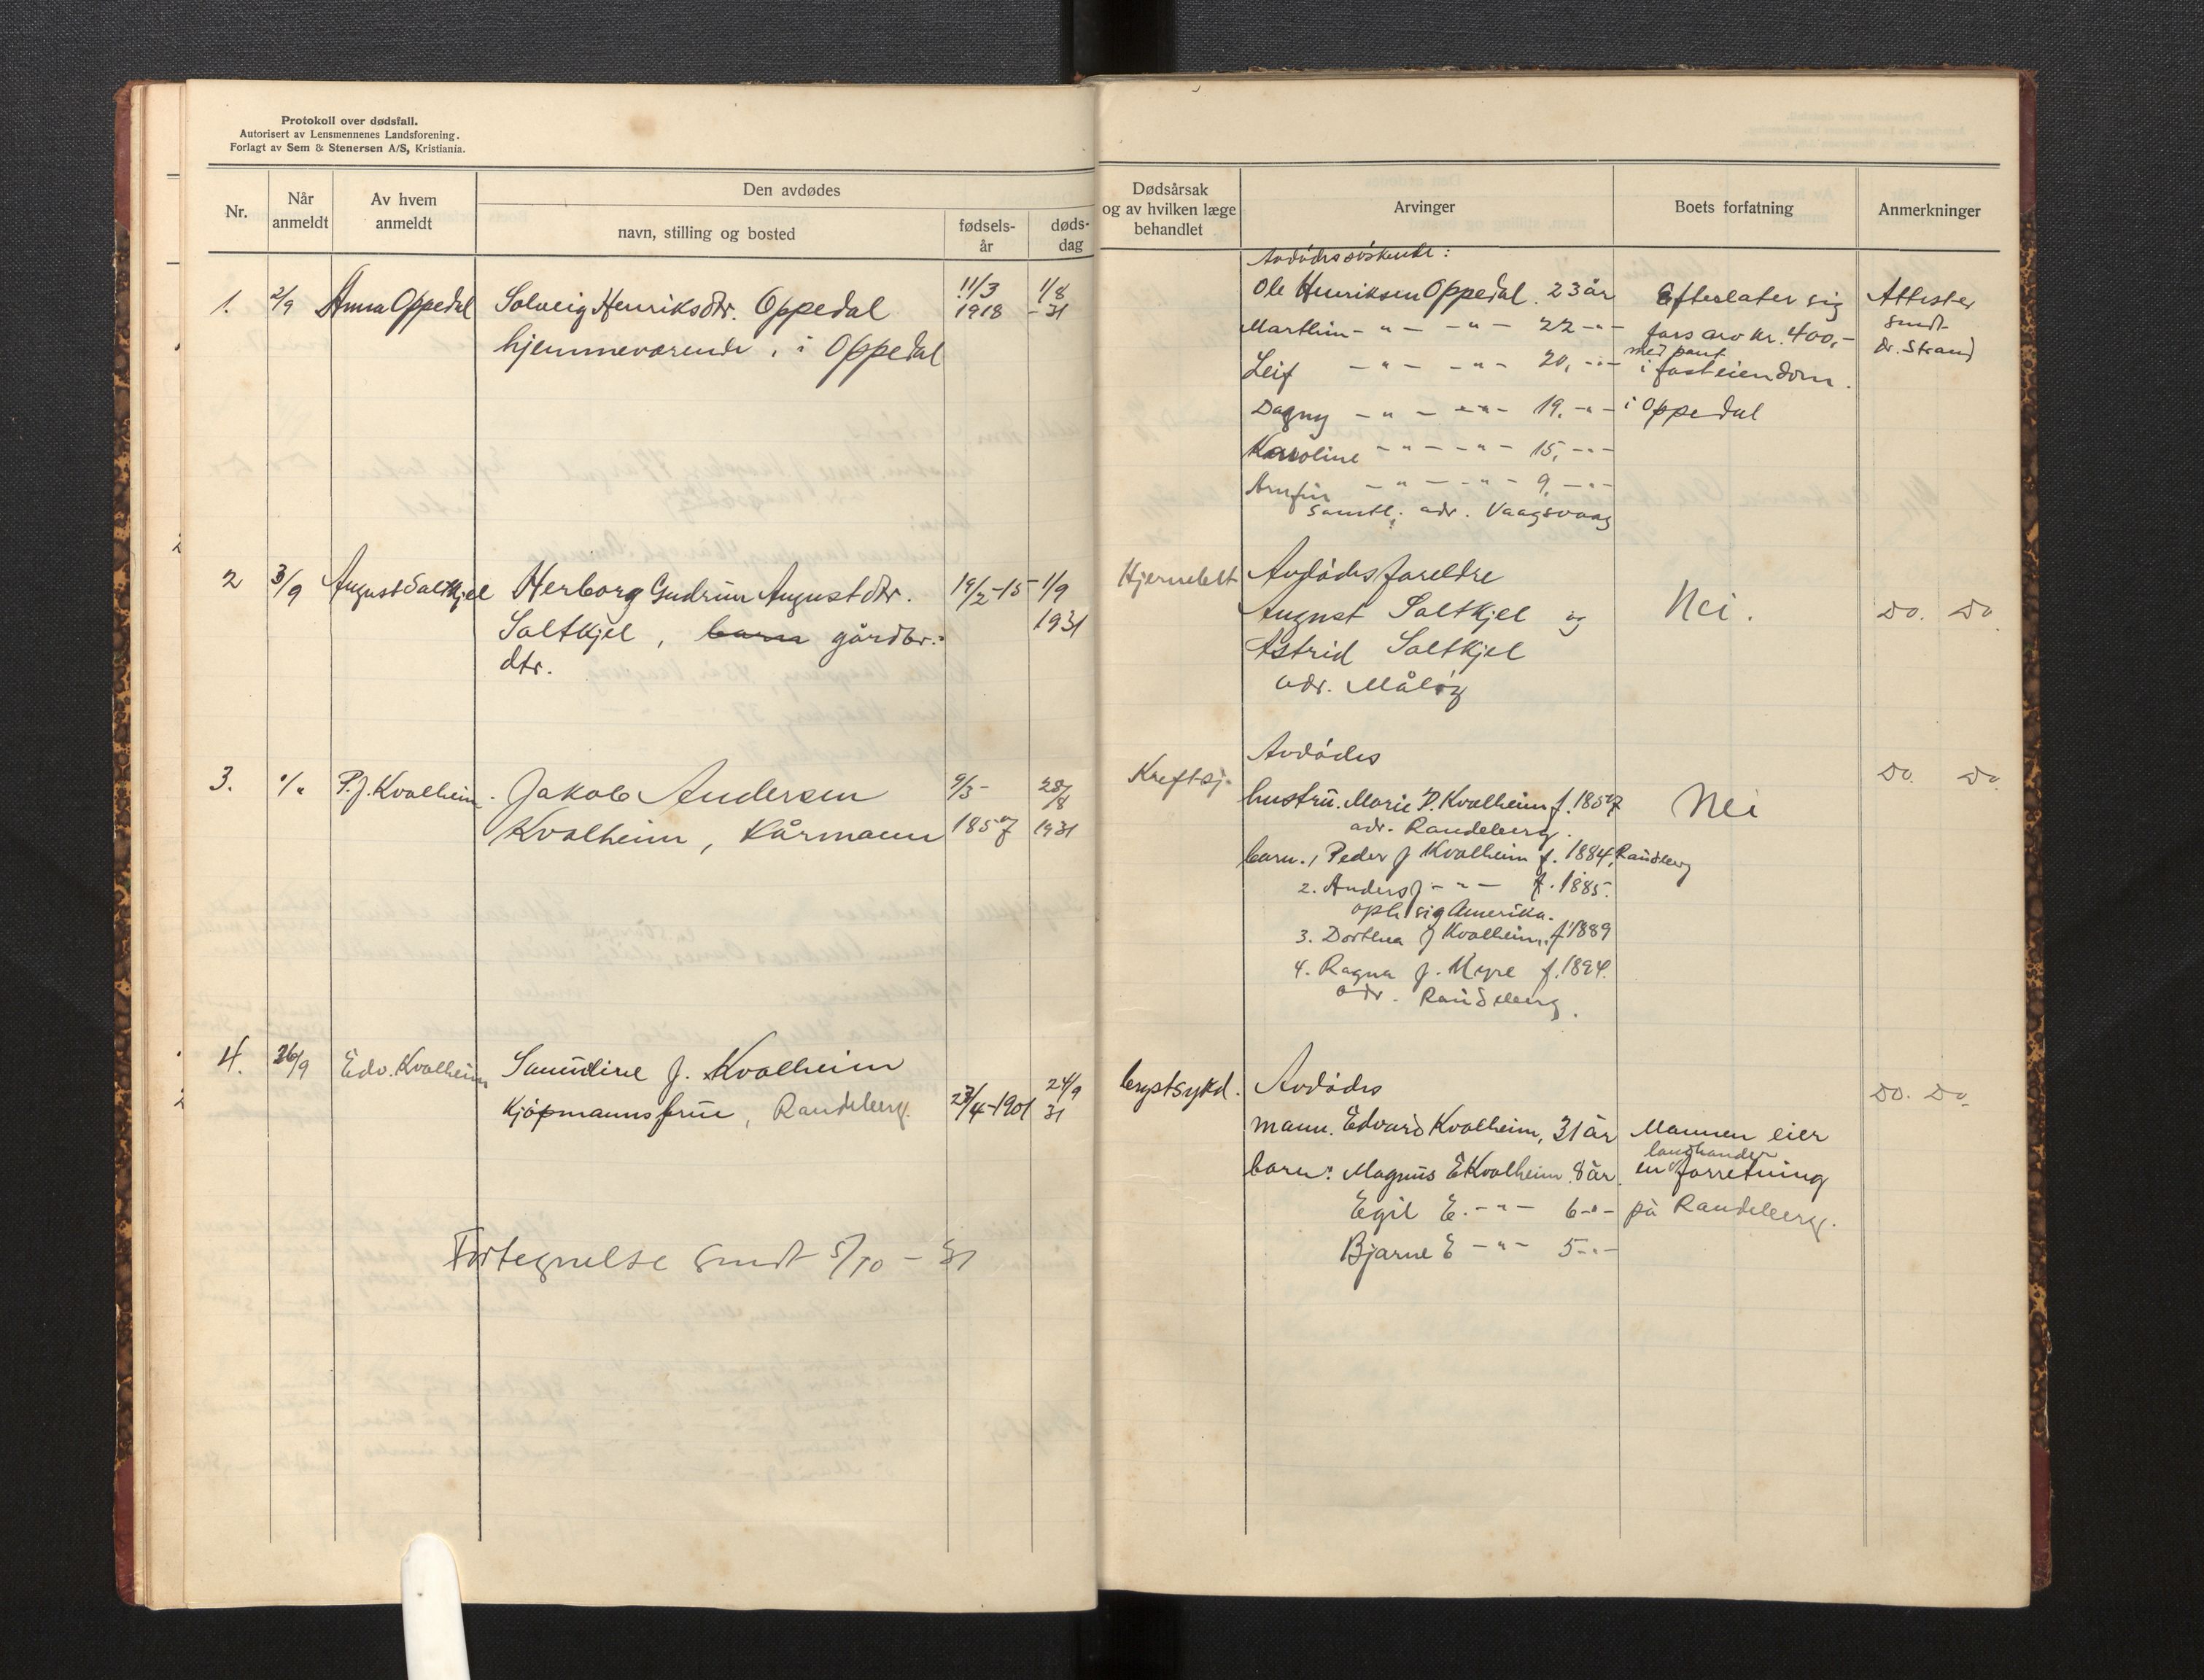 Protokoll over dødsfall.
Autorisert av Lensmennenes Landsforening.
Forlagt av Sem & Stenersen A/S, Kristiania.
Nr.
Når anmeldt
Av hvem anmeldt
Den avdødes
navn, stilling og bosted
fødsels-år
døds-dag
Dødsårsak og av hvilken læge behandlet
Arvinger
Boets forfatning
Anmerkninger
1. 2/9 Anna Oppedal Solveig Henriksdtr. Oppedal 11/3 1918 1/8 -31
hjemmeværende, i Oppedal
Avdødes søskende:
Ole Henriksen Oppedal. 23 år
Marthin - " - - " - 22 - " -
Leif - " - - " - 20, - " -
Dagny - " - - " - 19. - " -
Karoline - " - - " - 15, - " -
Arnfin - " - - " - 9, - " -
samtl. adr. Vaagsvaag
Efterlater sig
fars arv kr. 400,-
med pant
i fast eiendom.
i Oppedal
Attester
sendt
dr. Strand
2 3/9 August Saltkjel Herborg Gudrun Augustdtr. 19/2-15 1/9
Saltkjel, barn gårdbr.- 1931
dtr.
Hjernebet
Avdødes foreldre
August Saltkjel og
Astrid Saltkjel
adr. Måløy
Nei.
Do. Do.
3. "/" P. J. Kvalheim. Jakob Andersen 9/3- 28/8
Kvalheim, Kårmann 1857 1931
Kreftsj.
Avdødes
hustru. Marie P. Kvalheim f. 1857
adr. Raudeberg.
barn. 1 Peder J Kvalheim f. 1884, Raudeberg
2. Anders J - " - f. 1885.
oph. sig Amerika.
3. Dorthea J Kvalheim, f. 1889
4. Ragna J. Myre f. 1894.
adr. Raudeberg.
Nei
Do. Do.
4. 26/9 Edv. Kvalheim Samudine J. Kvalheim
Kjøpmannsfrue, Raudeberg. 23/4-1901 24/9 31
brystsykd.
Avdødes
mann. Edvard Kvalheim, 31 år
barn: Magnus E Kvalheim 8 år
Egil E. - " - 6 - " -
Bjarne E - " - 5 - " -
Mannen eier
landhander
en forretning
på Raudeberg.
Do. Do.
Fortegnelse sendt 5/10 - 31